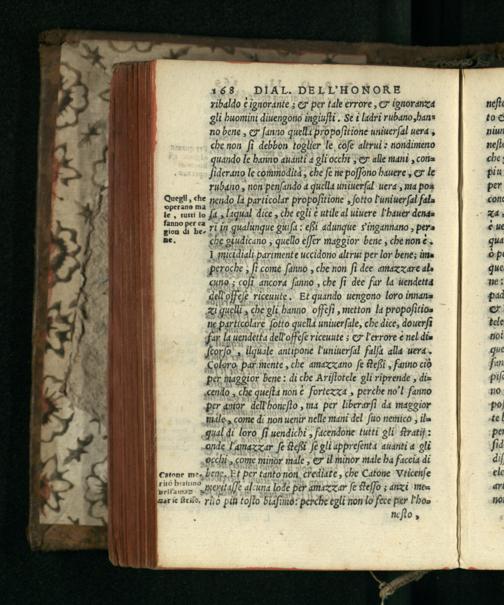 168 DIAL. DELL'HONORE
ribaldo è ignorante; & per tale errore, & ignoranza
gli huomini diuengono ingiusti. Se i ladri rubano, han-
no bene, & sanno quella propositione uniuersal uera,
che non si debbon toglier le cose altrui: nondimeno
quando le hanno auanti a gli occhi, & alle mani, con-
siderano le commodità, che se ne possono hauere, & le
rubano, non pensando a quella uniuersal uera, ma po
nendo la particolar propositione, sotto l'uniuersal fal-
sa, laqual dice, che egli è utile al uiuere l'hauer dena-
ri in qualunque guisa: essi adunque s'ingannano, per-
che giudicano, quello esser maggior bene, che non è.
I micidiali parimente uccidono altrui per lor bene; im-
peroche, si come sanno, che non si dee amazzare al-
cuno; così ancora sanno, che si dee far la uendetta
dell'offese riceuute. Et quando uengono loro innan-
zi quelli, che gli hanno offesi, metton la propositio-
ne particolare sotto quella uniuersale, che dice, douersi
far la uendetta dell'offese riceuute; & l'errore è nel di-
scorso, ilquale antipone l'uniuersal falsa alla uera.
Coloro parimente, che amazzano se stessi, fanno ciò
per maggior bene: di che Aristotele gli riprende, di-
cendo, che questa non è fortezza, perche no'l fanno
per amor dell'honesto, ma per liberarsi da maggior
male, come di non uenir nelle mani del suo nemico, il-
qual di loro si uendichi, facendone tutti gli stratij:
onde l'amazzar se stessi se gli appresenta auanti a gli
occhi, come minor male, & il minor male ha faccia di
bene. Et per tanto non crediate, che Catone Vticense
meritasse alcuna lode per amazzar se stesso; anzi me-
ritò piu tosto biasimo: perche egli non lo fece per l'ho-
nesto,
Quegli, che
operano ma
le, tutti lo
fanno per ca
gion di be-
ne.
Catone me-
ritò biasimo
nell'amaz-
zar se stesso.